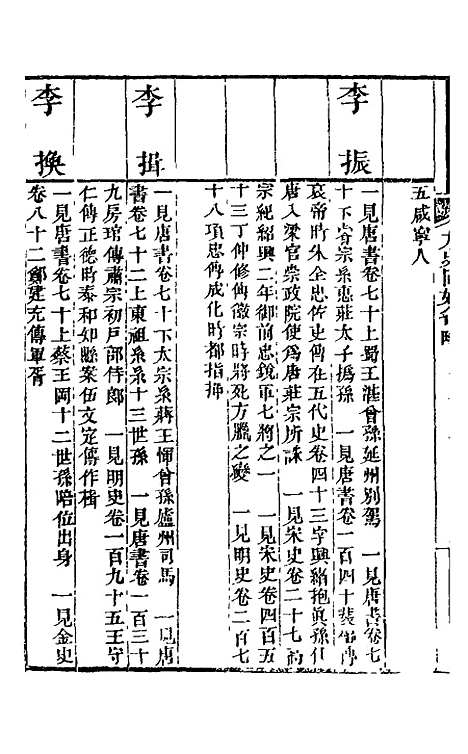 五咸寧人
李振
一見唐書卷七十上蜀王湛曾孫延州別駕　一見唐書卷七
十下睿宗系惠莊太子撝孫　一見唐書卷一百四十裴傳
哀帝時朱全忠佐史傳在五代史卷四十三字興緒抱眞孫仕
唐入梁官崇政院使爲唐莊宗所誅　一見宋史卷二十七高
宗紀紹興二年御前忠銳軍七將之一　一見宋史卷四百五
十三丁仲修傳徽宗時將死方臘之變　一見明史卷二百七
十八項忠傳成化時都指揮
李揖
一見唐書卷七十下太宗系蔣王惲曾孫廬州司馬　一見唐
書卷七十二上東祖系系十三世孫　一見唐書卷一百三十
九房琯傳肅宗初戸部侍郎　一見明史卷一百九十五王守
仁傳正德時泰和知縣案伍文定傳作楫
李換
一見唐書卷七十上蔡王岡十二世孫陪位出身　一見金史
卷八十二鄭建充傳軍胥